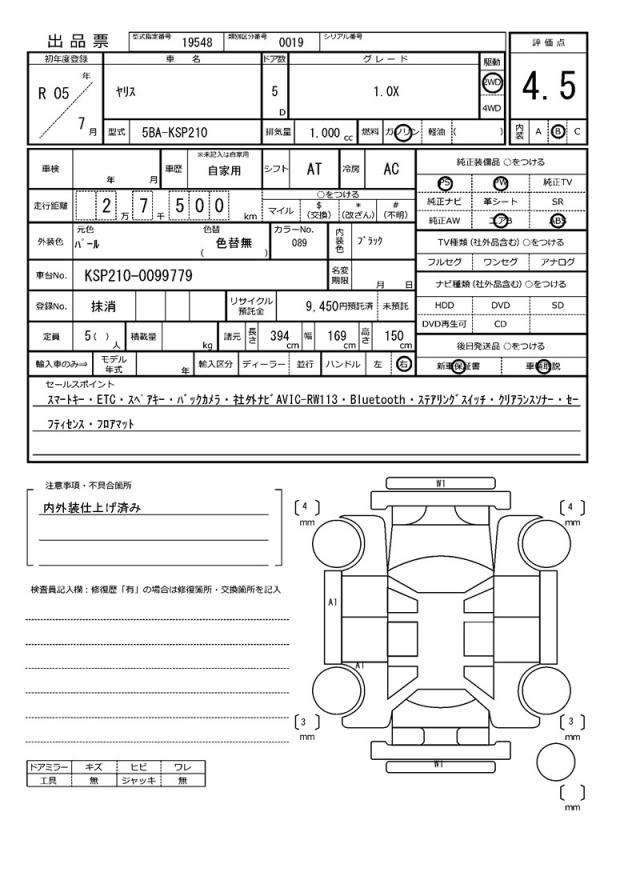 出品票 型式指定番号 19548 類別区分番号 0019 シリアル番号
評価点
初年度登録 車名 ドア数 グレード 駆動
R 05 年 ヤリス 5 D 1.0X 2WD 4WD 4.5
7 月 型式 5BA-KSP210 排気量 1.000 cc 燃料 ガソリン 軽油 ( ) 内装 A B C
車検 年 月 車歴 ※未記入は自家用 自家用 シフト AT 冷房 AC 純正装備品 ○をつける
PS PW 純正TV
走行距離 2 万 7 千 5 0 0 km ○をつける 純正ナビ 革シート SR
マイル $ (交換) * (改ざん) # (不明) 純正AW エアB ABS
外装色 元色 パール 色替 ( 色替無 ) カラーNo. 089 内装色 ブラック TV種類 (社外品含む) ○をつける
フルセグ ワンセグ アナログ
車台No. KSP210-0099779 名変期限 月 日 ナビ種類 (社外品含む) ○をつける
登録No. 抹消 リサイクル預託金 9,450円預託済 未預託 HDD DVD SD
DVD再生可 CD
定員 5( ) 人 積載量 kg 諸元 長さ 394 cm 幅 169 cm 高さ 150 cm 後日発送品 ○をつける
輸入車のみ⇒ モデル年式 年 輸入区分 ディーラー 並行 ハンドル 左 右 新車保証書 車輌取説
セールスポイント
スマートキー・ETC・スペアキー・バックカメラ・社外ナビAVIC-RW113・Bluetooth・ステアリングスイッチ・クリアランスソナー・セー
フティセンス・フロアマット
注意事項・不具合箇所
内外装仕上げ済み
W1
[ 4 ] mm [ 4 ] mm
検査員記入欄：修復歴「有」の場合は修復箇所・交換箇所を記入
A1
A1
[ 3 ] mm [ 3 ] mm
W1
ドアミラー キズ ヒビ ワレ
工具 無 ジャッキ 無
[ ] mm